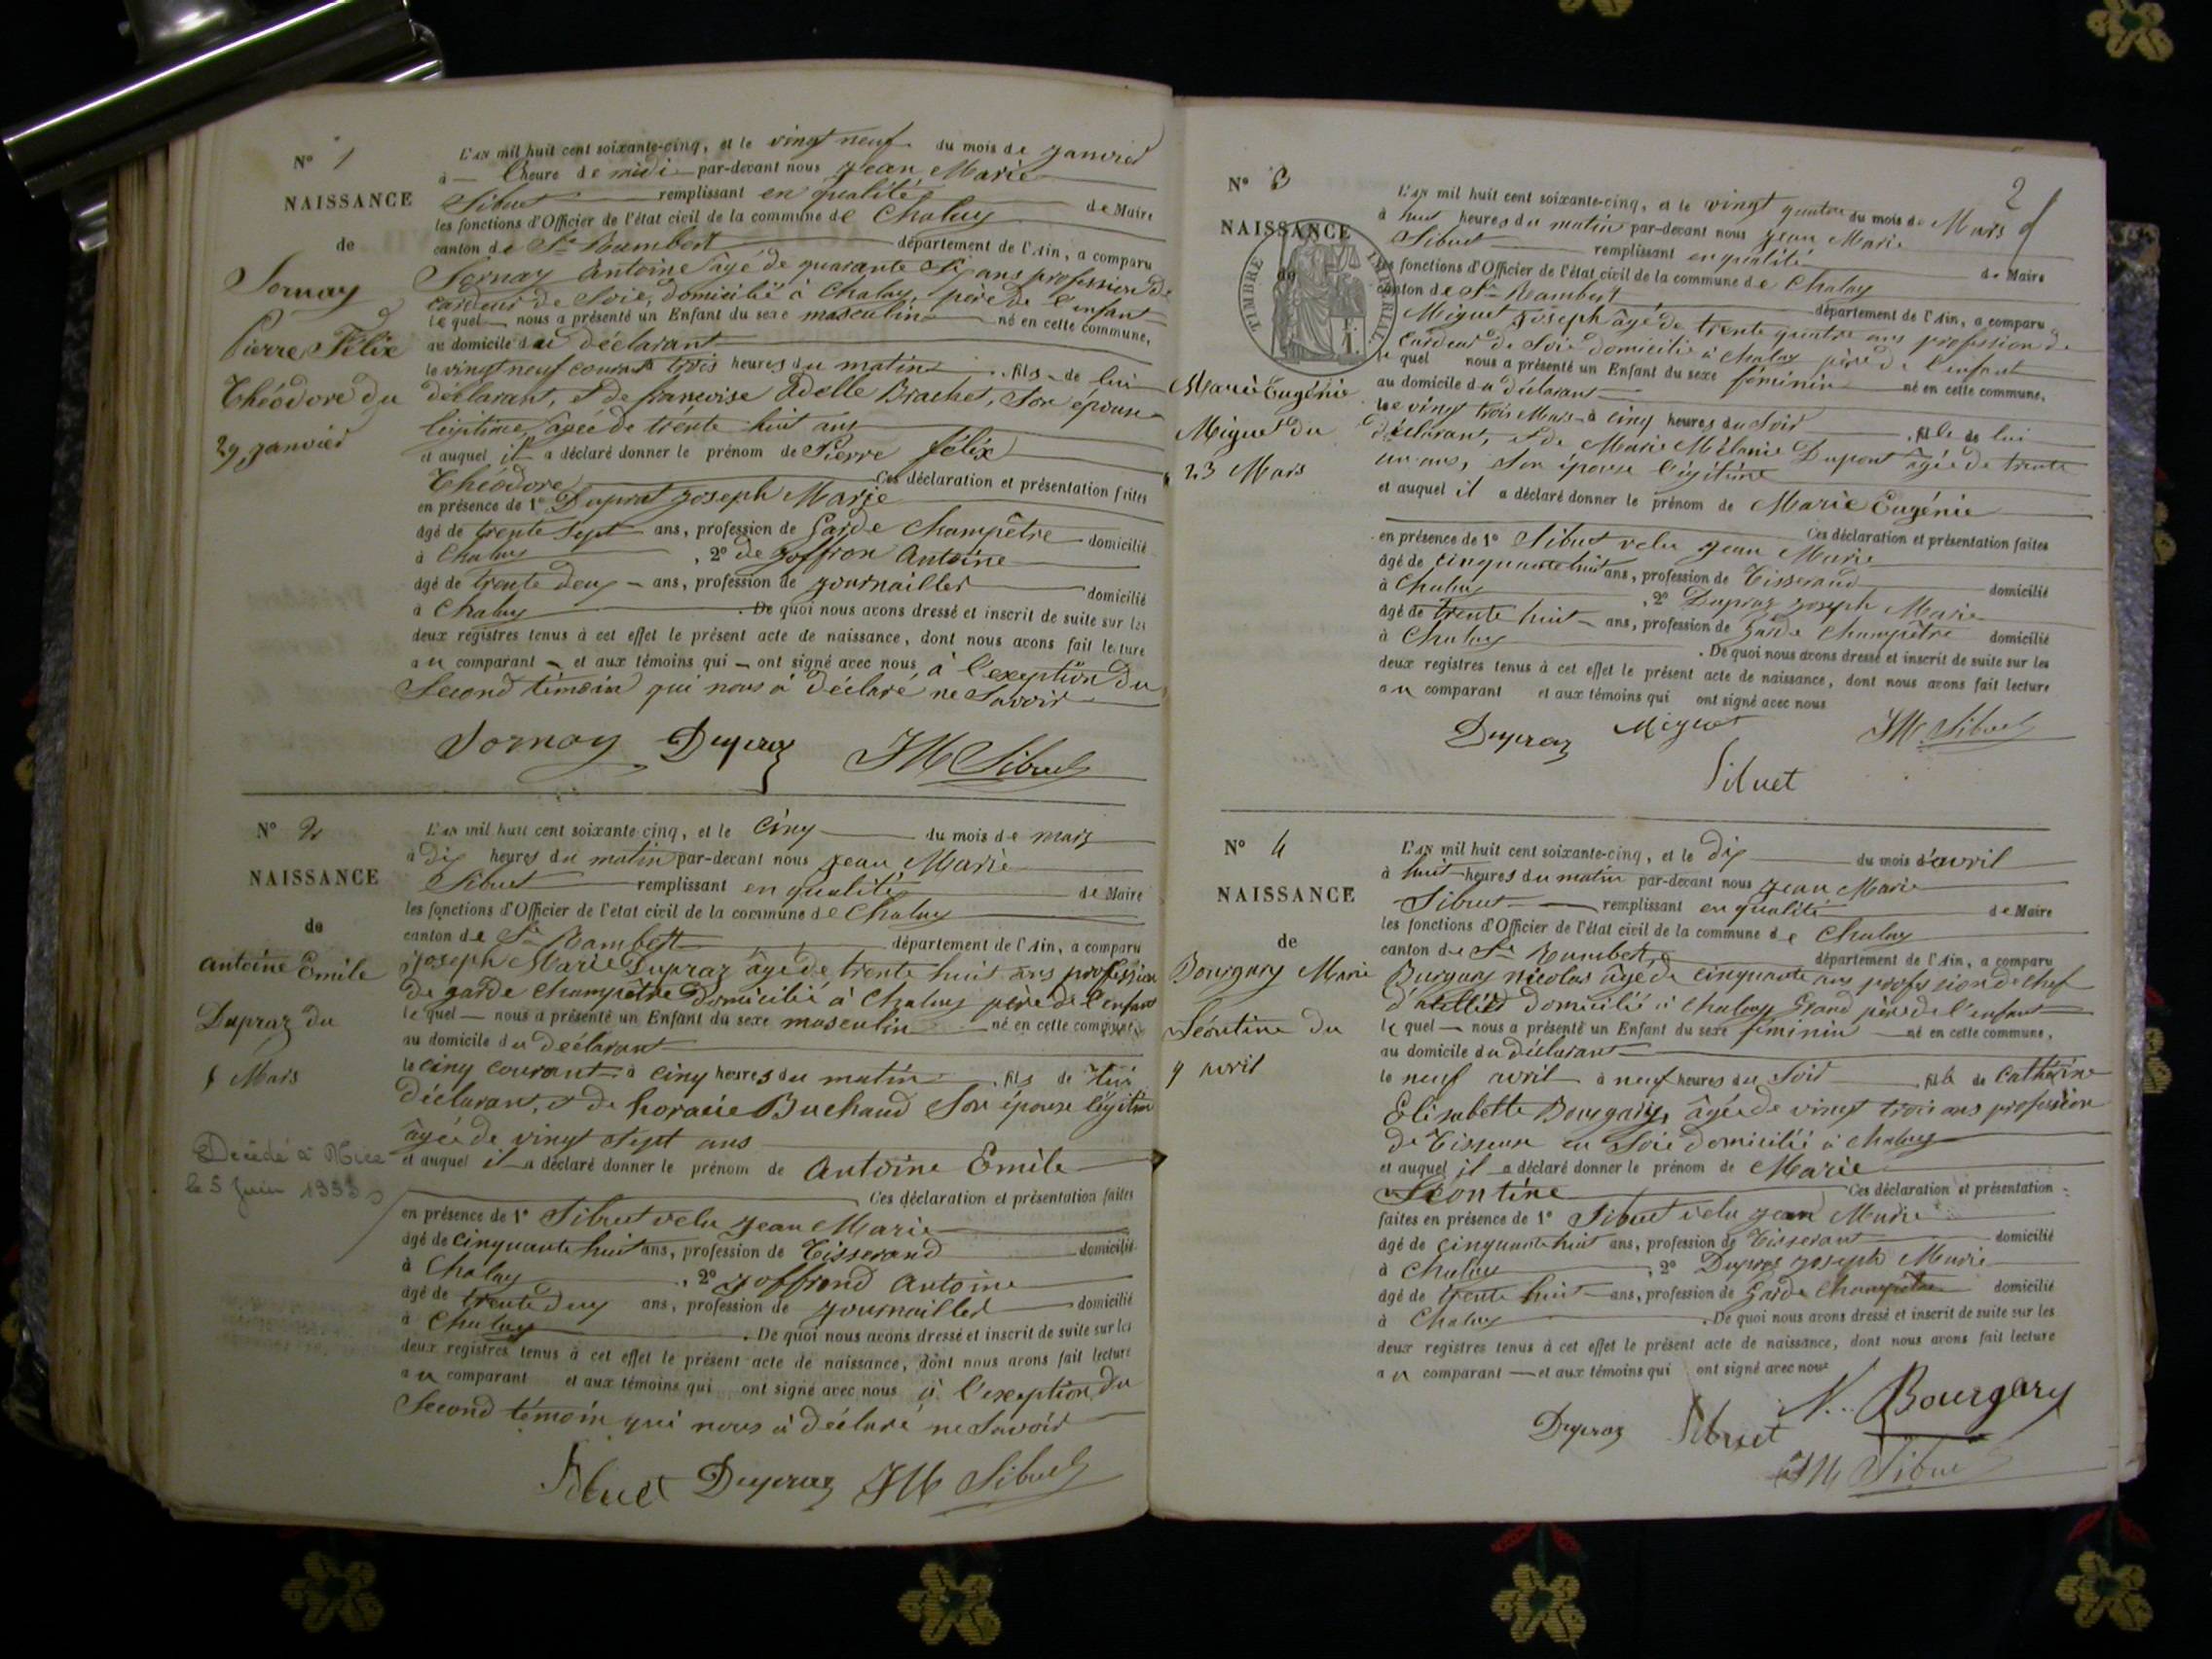 N° 1
NAISSANCE
de
Sornay
Pierre Félix
Théodore du
29 janvier
L'AN mil huit cent soixante-cinq, et le vingt neuf du mois de janvier
à — l'heure de midi par-devant nous Jean Marie
Sibuet remplissant en qualité de Maire
les fonctions d'Officier de l'état civil de la commune de Chaley
canton de St Rambert département de l'Ain, a comparu
Sornay Antoine âgé de quarante six ans profession de
cardeur de Soie, domicilié à Chaley, père de l'enfant
lequel — nous a présenté un Enfant du sexe masculin né en cette commune,
au domicile du déclarant
le vingt neuf courant à trois heures du matin, fils de lui
déclarant, et de françoise Adelle Brachet, Son épouse
légitime, âgée de trente huit ans
et auquel il a déclaré donner le prénom de Pierre félix
Théodore Ces déclaration et présentation faites
en présence de 1° Duprat Joseph Marie
âgé de trente Sept ans, profession de Garde Champêtre domicilié
à Chaley, 2° de Joffron Antoine
âgé de trente deux — ans, profession de journaillier domicilié
à Chaley. De quoi nous avons dressé et inscrit de suite sur les
deux registres tenus à cet effet le présent acte de naissance, dont nous avons fait lecture
au comparant — et aux témoins qui — ont signé avec nous, à l'exception du
Second témoin qui nous à déclaré ne Savoir
Sornay Dupraz JM Sibuet
N° 2
NAISSANCE
de
Antoine Emile
Dupraz du
5 Mars
Décédé à Nice
le 5 Juin
L'AN mil huit cent soixante-cinq, et le Cinq du mois de mars
à dix heures du matin par-devant nous Jean Marie
Sibuet remplissant en qualité de Maire
les fonctions d'Officier de l'état civil de la commune de Chaley
canton de St Rambert département de l'Ain, a comparu
Joseph Marie Dupraz âgé de trente huit ans profession
de garde Champêtre Domicilié à Chaley père de l'enfant
lequel — nous a présenté un Enfant du sexe masculin né en cette commune,
au domicile du déclarant
le cinq courant à cinq heures du matin, fils de lui
Déclarant, et de horacie Buchaud Son épouse légitime
âgée de vingt Sept ans
et auquel il a déclaré donner le prénom de Antoine Emile
Ces déclaration et présentation faites
en présence de 1° Sibuet velu Jean Marie
âgé de cinquante huit ans, profession de Tisserand domicilié
à Chaley, 2° Joffrond Antoine
âgé de trente deux ans, profession de journaillier domicilié
à Chaley. De quoi nous avons dressé et inscrit de suite sur les
deux registres tenus à cet effet le présent acte de naissance, dont nous avons fait lecture
au comparant et aux témoins qui ont signé avec nous à l'exception du
Second témoin qui nous à déclaré ne Savoir
Sibuet Dupraz JM Sibuet
2
N° 3
NAISSANCE
de
TIMBRE IMPÉRIAL
Marie Eugénie
Miguet du
23 Mars
L'AN mil huit cent soixante-cinq, et le vingt quatre du mois de Mars
à huit heures du matin par-devant nous Jean Marie
Sibuet remplissant en qualité de Maire
les fonctions d'Officier de l'état civil de la commune de Chaley
canton de St Rambert département de l'Ain, a comparu
Miguet Joseph âgé de trente quatre ans profession de
Cardeur de Soie domicilié à Chaley père de l'enfant
lequel nous a présenté un Enfant du sexe féminin né en cette commune,
au domicile du déclarant
le vingt trois Mars à cinq heures du Soir, fille de lui
déclarant, et de Marie Mélanie Dupont âgée de trente
un ans, Son épouse légitime
et auquel il a déclaré donner le prénom de Marie Eugénie
Ces déclaration et présentation faites
en présence de 1° Sibuet velu Jean Marie
âgé de cinquante huit ans, profession de Tisserand domicilié
à Chaley, 2° Dupraz Joseph Marie
âgé de trente huit — ans, profession de Garde Champêtre domicilié
à Chaley. De quoi nous avons dressé et inscrit de suite sur les
deux registres tenus à cet effet le présent acte de naissance, dont nous avons fait lecture
au comparant et aux témoins qui ont signé avec nous
Dupraz Miguet JM Sibuet
Sibuet
N° 4
NAISSANCE
de
Bourgary Marie
Léontine du
9 avril
L'AN mil huit cent soixante-cinq, et le dix du mois d'avril
à huit heures du matin par-devant nous Jean Marie
Sibuet — remplissant en qualité de Maire
les fonctions d'Officier de l'état civil de la commune de Chaley
canton de St Rambert, département de l'Ain, a comparu
Burgary Nicolas âgé de cinquante ans profession de chef
d'atellier domicilié à Chaley Grand père de l'enfant
lequel — nous a présenté un Enfant du sexe féminin né en cette commune,
au domicile du déclarant
le neuf avril à neuf heures du Soir, fille de Cathérine
Elisabette Bourgary, âgée de vingt trois ans profession
de Tisseuse en Soie domicilié à Chaley
et auquel il a déclaré donner le prénom de Marie
Léontine Ces déclaration et présentation
faites en présence de 1° Sibuet velu Jean Marie
âgé de cinquante huit ans, profession de Tisserant domicilié
à Chaley, 2° Dupras Joseph Marie
âgé de trente huit — ans, profession de Garde Champêtre domicilié
à Chaley. De quoi nous avons dressé et inscrit de suite sur les
deux registres tenus à cet effet le présent acte de naissance, dont nous avons fait lecture
au comparant — et aux témoins qui ont signé avec nous
Dupraz Sibuet N. Bourgary
JM Sibuet